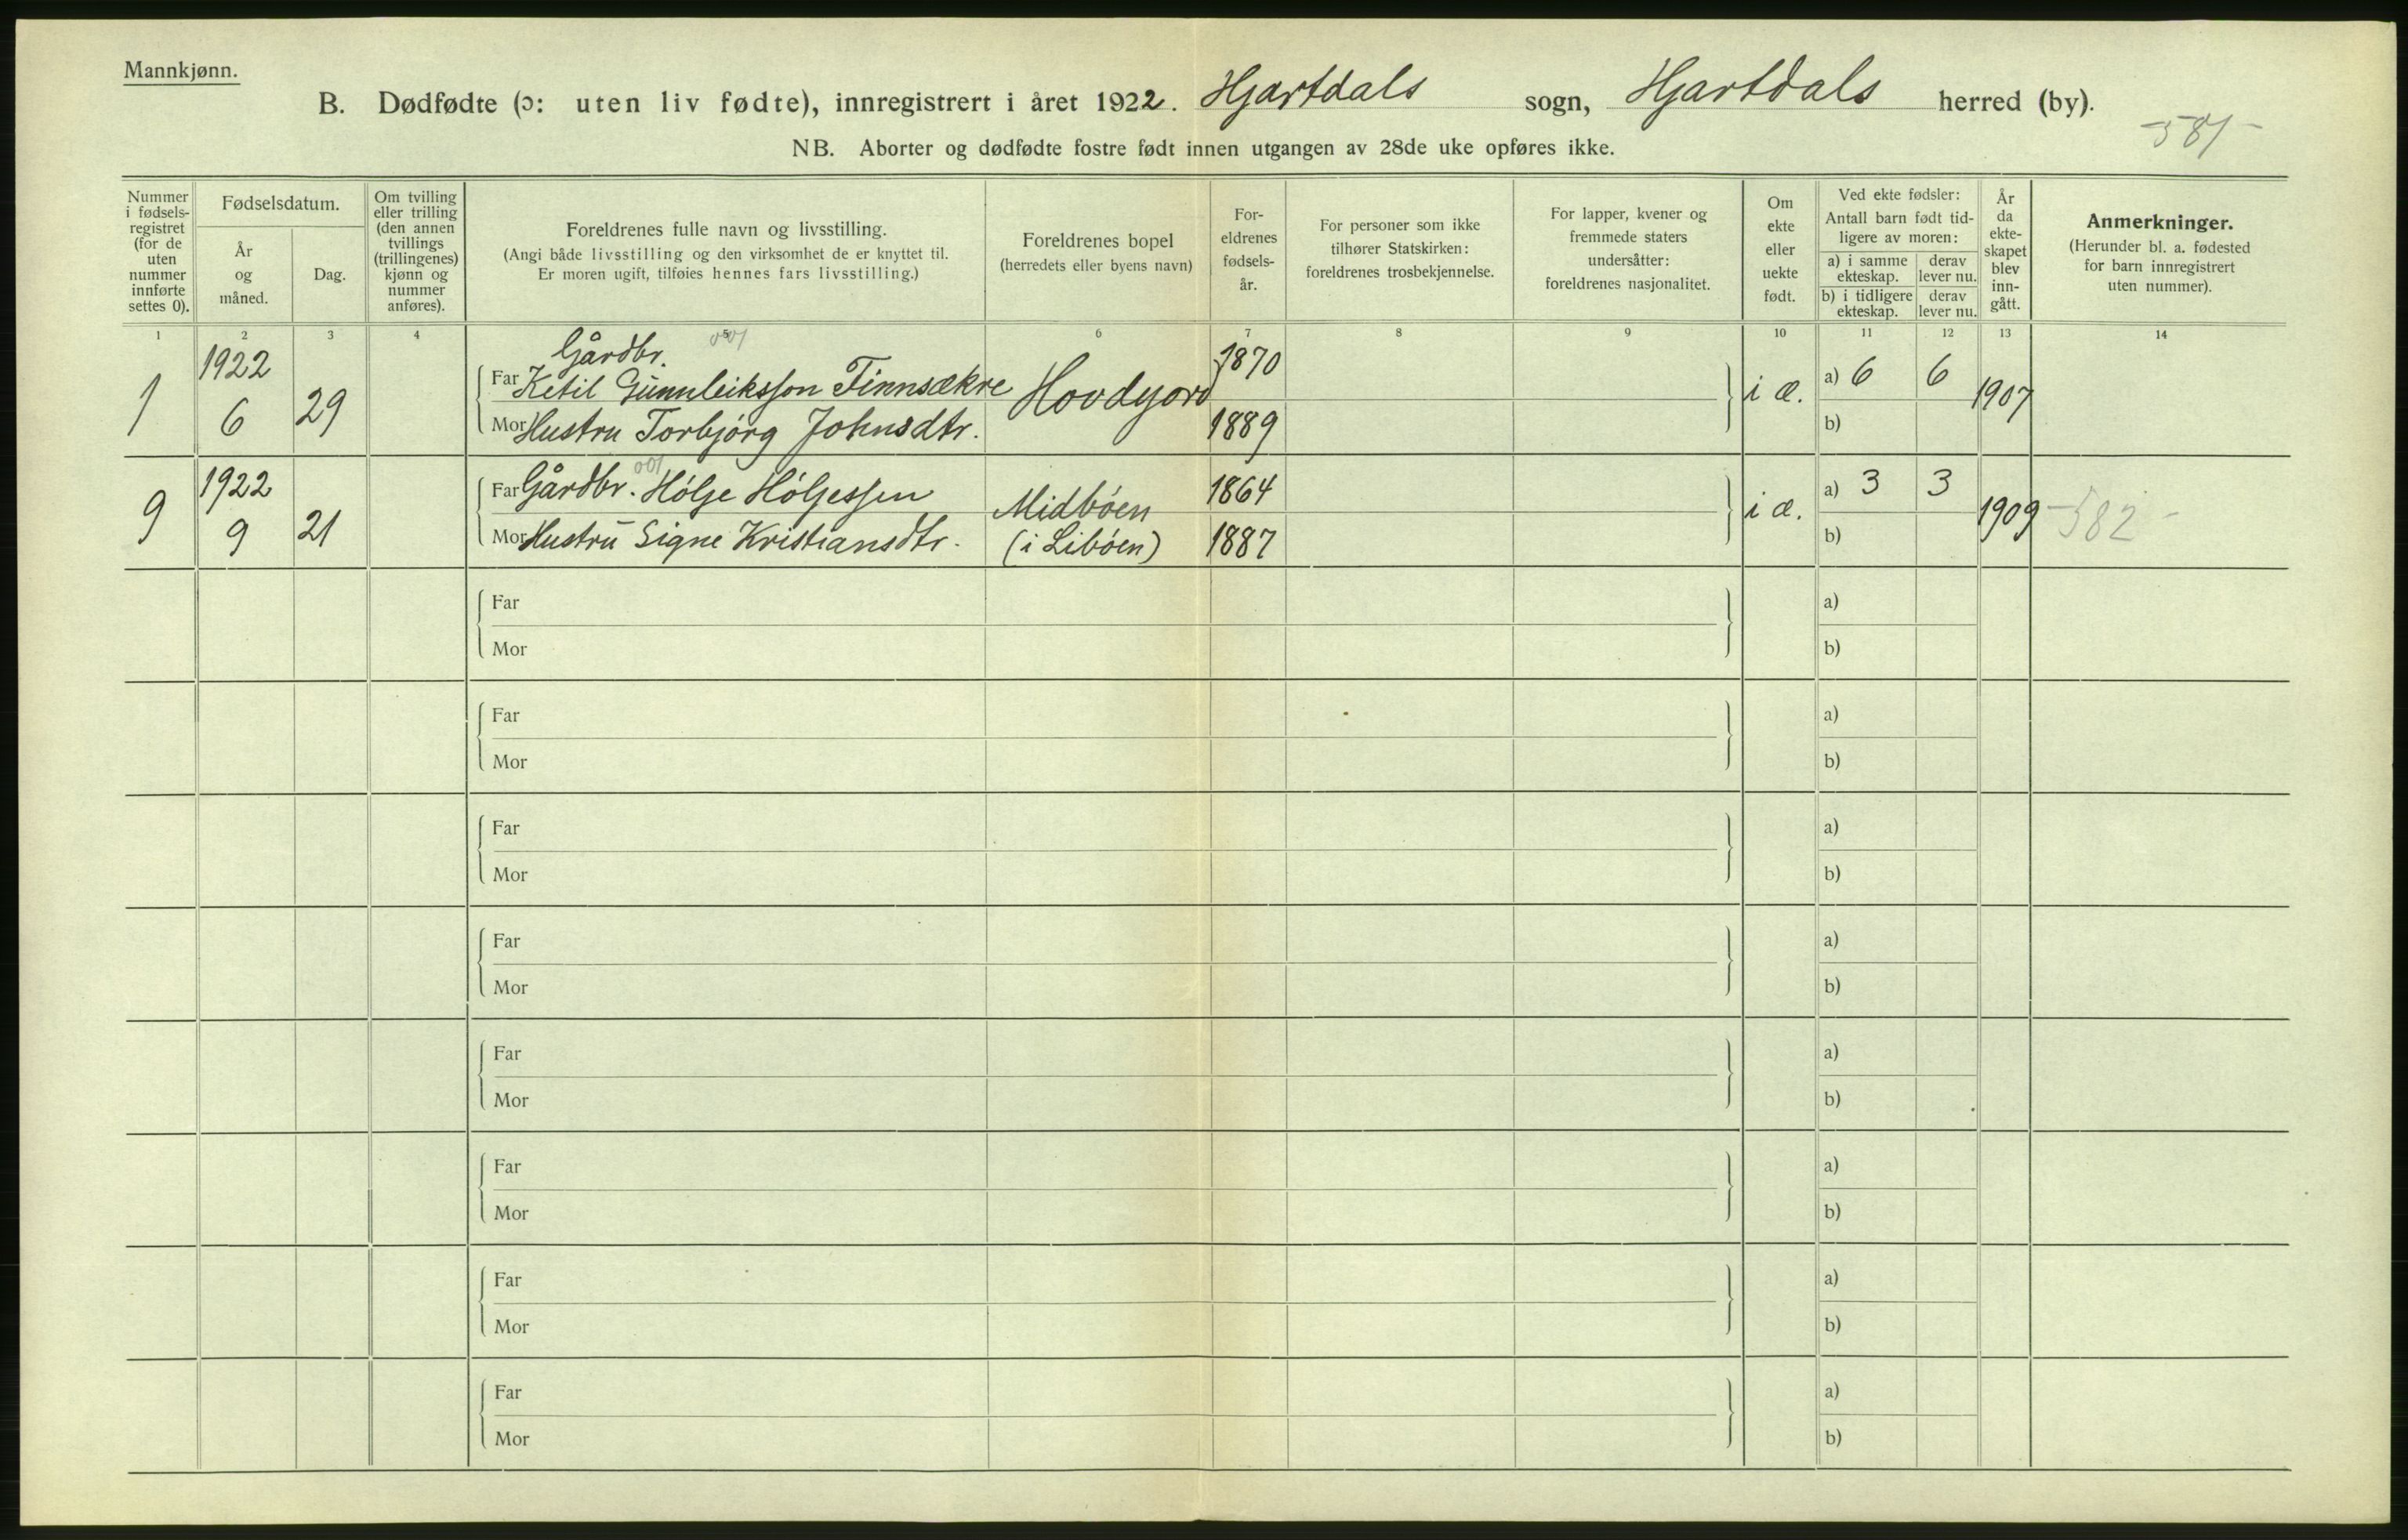 Mannkjønn.
B. Dødfødte (ɔ: uten liv fødte), innregistrert i året 1922. Hjartdals sogn, Hjartdals herred (by).
NB. Aborter og dødfødte fostre født innen utgangen av 28de uke opføres ikke.
-581-
Nummer
i fødsels-
registret
(for de
uten
nummer
innførte
settes 0).
Fødselsdatum.
År
og
måned.
Dag.
Om tvilling
eller trilling
(den annen
tvillings
(trillingenes)
kjønn og
nummer
anføres).
Foreldrenes fulle navn og livsstilling.
(Angi både livsstilling og den virksomhet de er knyttet til.
Er moren ugift, tilføies hennes fars livsstilling.)
Foreldrenes bopel
(herredets eller byens navn)
For-
eldrenes
fødsels-
år.
For personer som ikke
tilhører Statskirken:
foreldrenes trosbekjennelse.
For lapper, kvener og
fremmede staters
undersåtter:
foreldrenes nasjonalitet.
Om
ekte
eller
uekte
født.
Ved ekte fødsler:
Antall barn født tid-
ligere av moren:
a) i samme
ekteskap.
derav
lever nu.
b) i tidligere
ekteskap.
derav
lever nu.
År
da
ekte-
skapet
blev
inn-
gått.
Anmerkninger.
(Herunder bl. a. fødested
for barn innregistrert
uten nummer).
1 2 3 4 5 6 7 8 9 10 11 12 13 14
1 1922 6 29
Gårdbr. 001
Far Ketil Gunnleiksson Finnsækre
Mor Hustru Torbjørg Johnsdtr.
Hovdyord
1870
1889
i æ.
a) 6 6
b)
1907
9 1922 9 21
001
Far Gårdbr. Hølje Høljessen
Mor Hustru Signe Kristiansdtr.
Midbøen
(i Libøen)
1864
1887
i æ.
a) 3 3
b)
1909
-582-
Far a)
Mor b)
Far a)
Mor b)
Far a)
Mor b)
Far a)
Mor b)
Far a)
Mor b)
Far a)
Mor b)
Far a)
Mor b)
Far a)
Mor b)